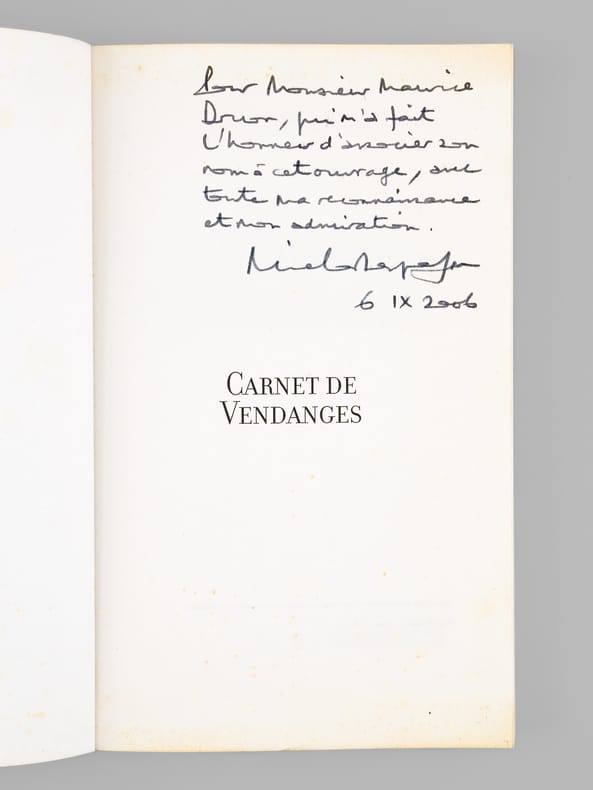 Pour Monsieur Maurice
Druon, qui m'a fait
l'honneur d'associer son
nom à cet ouvrage, avec
toute ma reconnaissance
et mon admiration.
6 IX 2006
CARNET DE
VENDANGES